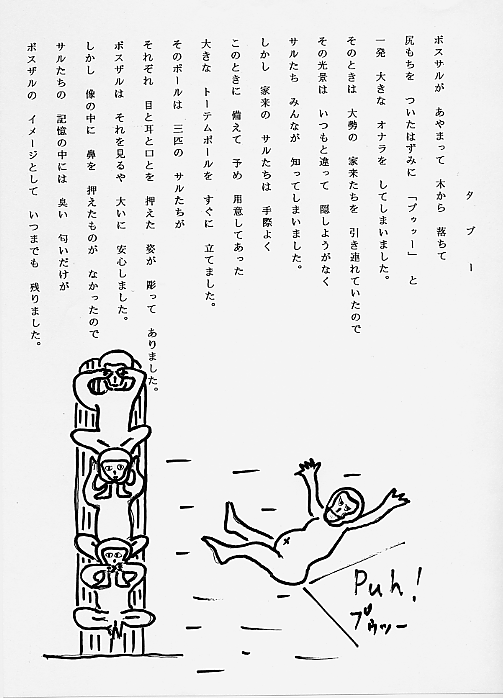 タブー
ボスサルが あやまって 木から 落ちて
尻もちを ついたはずみに 「ブゥッー」 と
一発 大きな オナラを してしまいました。
そのときは 大勢の 家来たちを 引き連れていたので
その光景は いつもと違って 隠しようがなく
サルたち みんなが 知ってしまいました。
しかし 家来の サルたちは 手際よく
このときに 備えて 予め 用意してあった
大きな トーテムポールを すぐに 立てました。
そのポールは 三匹の サルたちが
それぞれ 目と耳と口とを 押えた 姿が 彫って ありました。
ボスザルは それを見るや 大いに 安心しました。
しかし 像の中に 鼻を 押えたものが なかったので
サルたちの 記憶の中には 臭い 匂いだけが
ボスザルの イメージとして いつまでも 残りました。
Puh!
ブゥッー